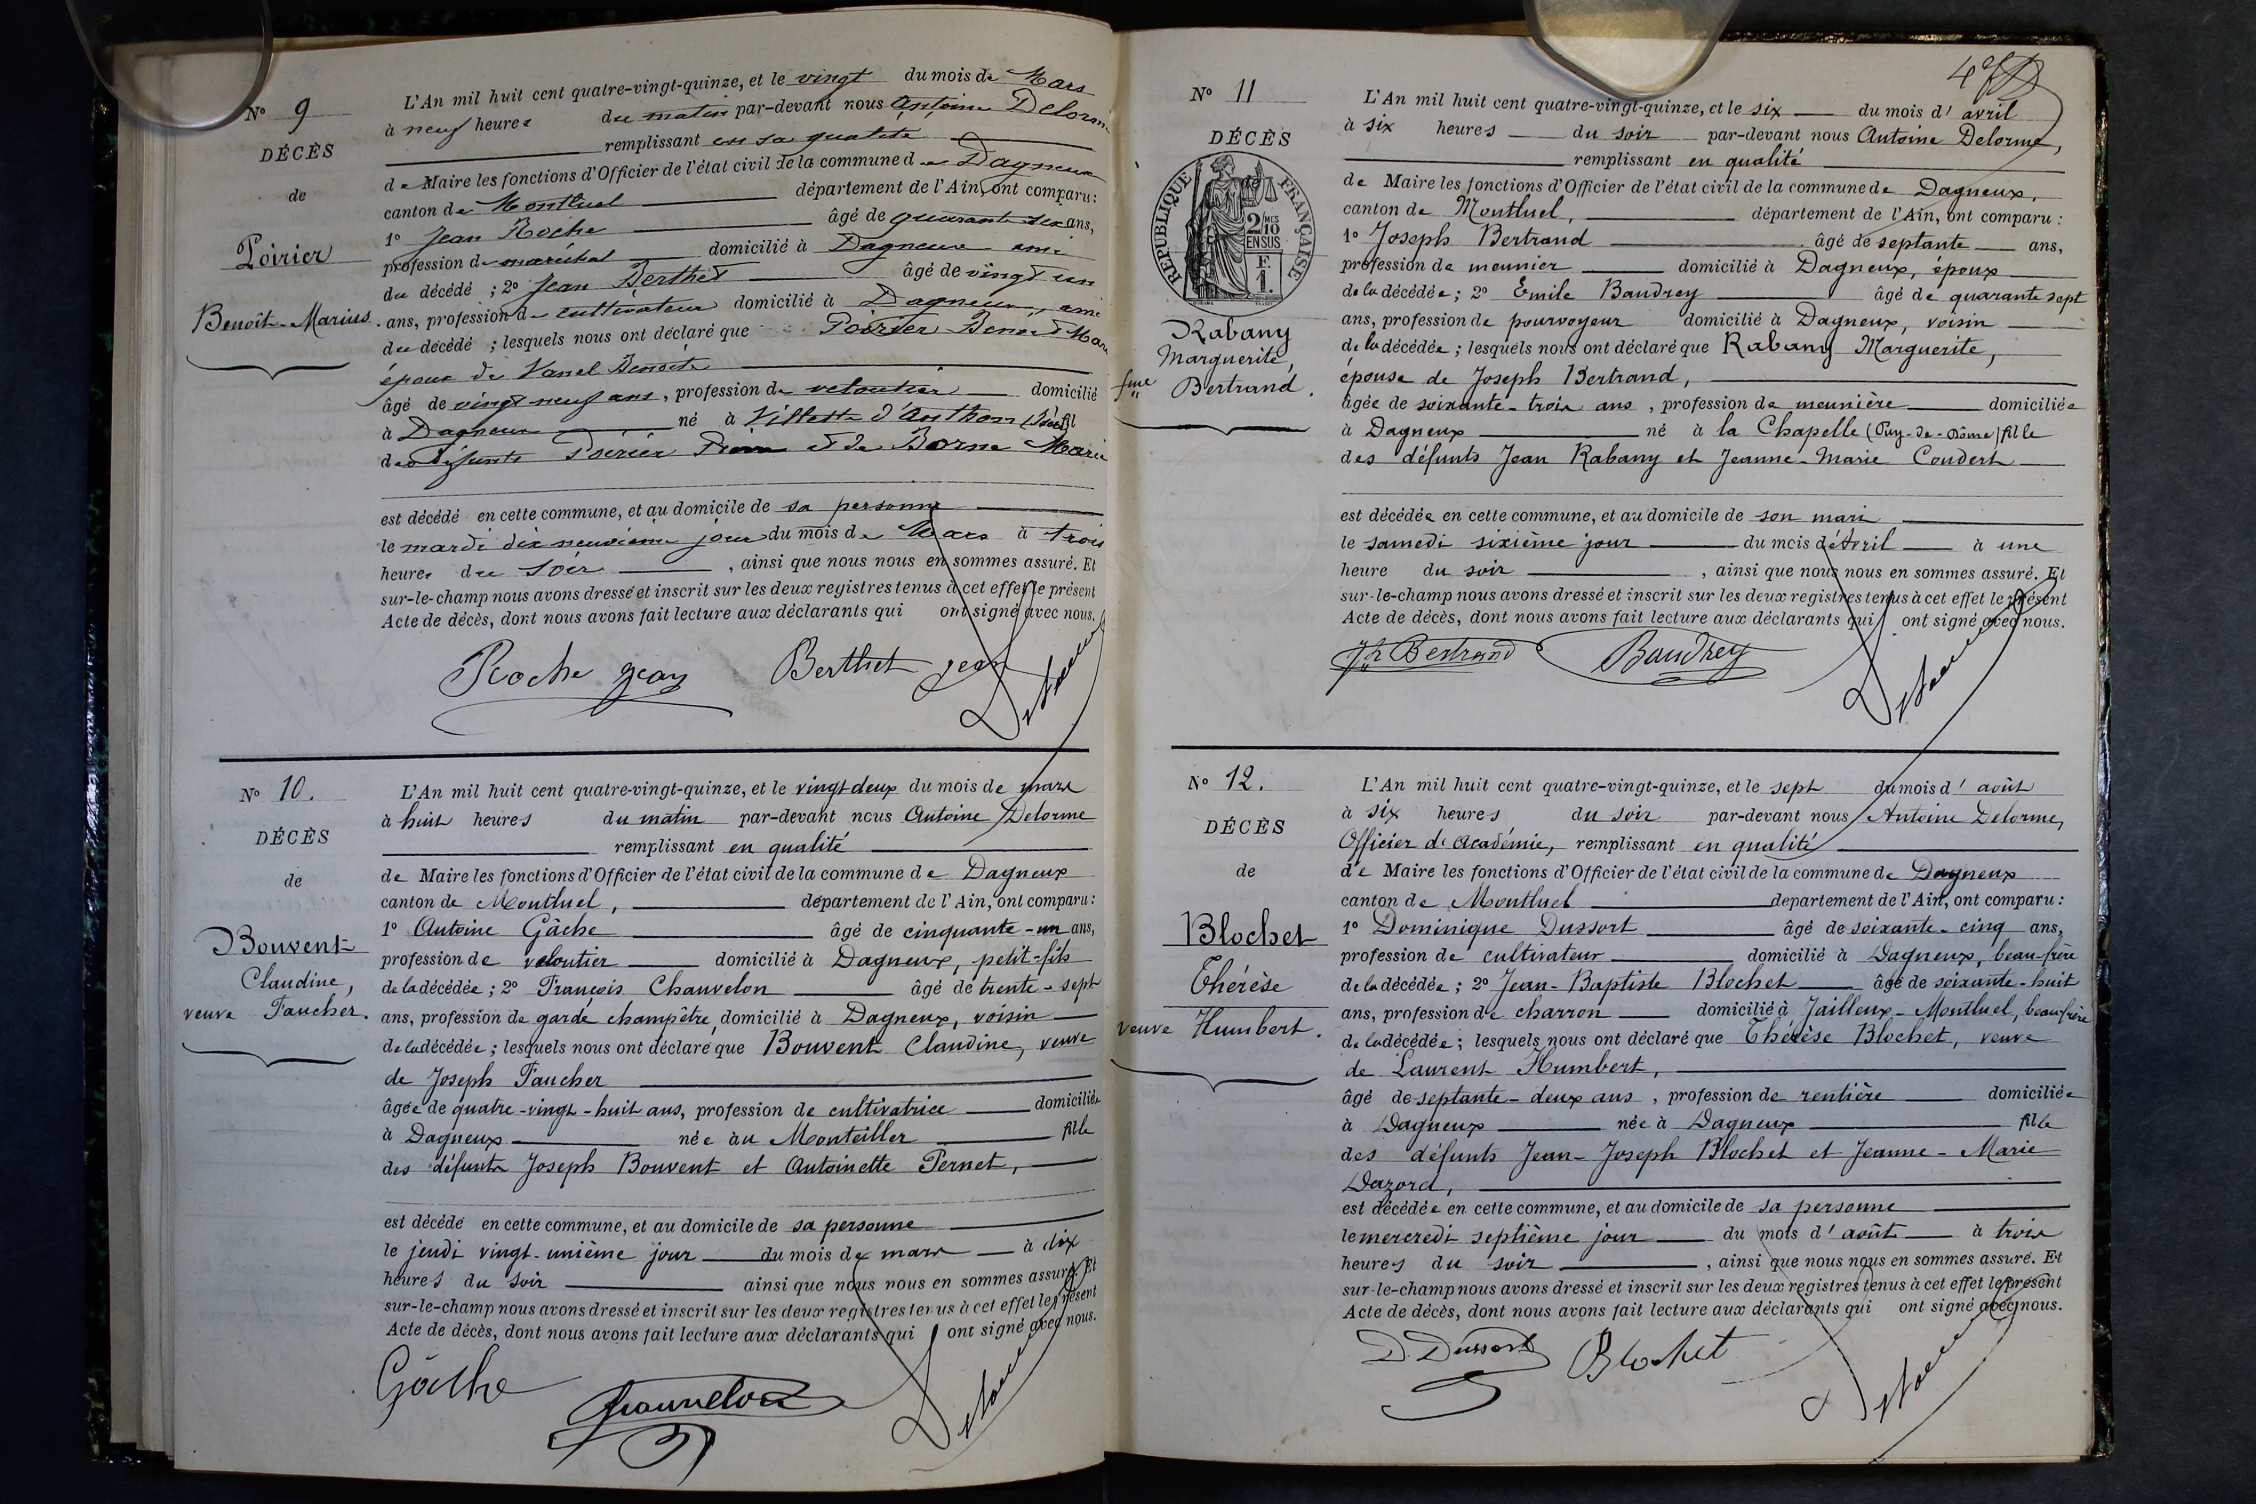 Nº 9
DÉCÈS
de
Poirier
Benoît-Marius.
L'An mil huit cent quatre-vingt-quinze, et le vingt du mois de Mars
à neuf heures du matin par-devant nous Antoine Delorme
remplissant en sa qualité
de Maire les fonctions d'Officier de l'état civil de la commune de Dagneux
canton de Montluel département de l'Ain, ont comparu :
1º Jean Roche âgé de quarante six ans,
profession de maréchal domicilié à Dagneux ami
du décédé ; 2º Jean Berthet âgé de vingt un
ans, profession de cultivateur domicilié à Dagneux, ami
du décédé ; lesquels nous ont déclaré que Poirier Benoît Mari
époux de Vanel Benoite
âgé de vingt neuf ans, profession de veloutier domicilié
à Dagneux né à Villette d'Anthon (Isère) fil
des défunts Poirier et de Borne Marie
est décédé en cette commune, et au domicile de sa personne
le mardi dix neuvième jour du mois de Mars à trois
heures du soir, ainsi que nous nous en sommes assuré. Et
sur-le-champ nous avons dressé et inscrit sur les deux registres tenus à cet effet le présent
Acte de décès, dont nous avons fait lecture aux déclarants qui ont signé avec nous.
Roche Jean Berthet Jean Delorme
Nº 10.
DÉCÈS
de
Bouvent
Claudine,
veuve Faucher.
L'An mil huit cent quatre-vingt-quinze, et le vingt-deux du mois de mars
à huit heures du matin par-devant nous Antoine Delorme
remplissant en qualité
de Maire les fonctions d'Officier de l'état civil de la commune de Dagneux
canton de Montluel, département de l'Ain, ont comparu :
1º Antoine Gâche âgé de cinquante-un ans,
profession de veloutier domicilié à Dagneux, petit-fils
de la décédée ; 2º François Chauvelon âgé de trente-sept
ans, profession de garde champêtre, domicilié à Dagneux, voisin
de la décédée ; lesquels nous ont déclaré que Bouvent Claudine, veuve
de Joseph Faucher
âgée de quatre-vingt-huit ans, profession de cultivatrice domiciliée
à Dagneux née au Monteiller fille
des défunts Joseph Bouvent et Antoinette Pernet,
est décédé en cette commune, et au domicile de sa personne
le jeudi vingt-unième jour du mois de mars à dix
heures du soir ainsi que nous nous en sommes assuré. Et
sur-le-champ nous avons dressé et inscrit sur les deux registres tenus à cet effet le présent
Acte de décès, dont nous avons fait lecture aux déclarants qui ont signé avec nous.
Gâche Chauvelon Delorme
4e
Nº 11
DÉCÈS
RÉPUBLIQUE FRANÇAISE
2/10 MES
EN SUS
F.
1.
Rabany
Marguerite,
fme Bertrand.
L'An mil huit cent quatre-vingt-quinze, et le six du mois d'avril
à six heures du soir par-devant nous Antoine Delorme,
remplissant en qualité
de Maire les fonctions d'Officier de l'état civil de la commune de Dagneux,
canton de Montluel, département de l'Ain, ont comparu :
1º Joseph Bertrand âgé de septante ans,
profession de meunier domicilié à Dagneux, époux
de la décédée ; 2º Emile Baudrey âgé de quarante sept
ans, profession de pourvoyeur domicilié à Dagneux, voisin
de la décédée ; lesquels nous ont déclaré que Rabany Marguerite,
épouse de Joseph Bertrand,
âgée de soixante-trois ans, profession de meunière domiciliée
à Dagneux né à la Chapelle (Puy-de-Dôme) fille
des défunts Jean Rabany et Jeanne-Marie Coudert
est décédée en cette commune, et au domicile de son mari
le samedi sixième jour du mois d'avril à une
heure du soir, ainsi que nous nous en sommes assuré. Et
sur-le-champ nous avons dressé et inscrit sur les deux registres tenus à cet effet le présent
Acte de décès, dont nous avons fait lecture aux déclarants qui ont signé avec nous.
Jh Bertrand Baudrey Delorme
Nº 12.
DÉCÈS
de
Blochet
Thérèse
veuve Humbert.
L'An mil huit cent quatre-vingt-quinze, et le sept du mois d'août
à six heures du soir par-devant nous Antoine Delorme,
Officier d'Académie, remplissant en qualité
de Maire les fonctions d'Officier de l'état civil de la commune de Dagneux
canton de Montluel département de l'Ain, ont comparu :
1º Dominique Dussort âgé de soixante-cinq ans,
profession de cultivateur domicilié à Dagneux, beau-frère
de la décédée ; 2º Jean-Baptiste Blochet âgé de soixante-huit
ans, profession de charron domicilié à Jailleux-Montluel, beau frère
de la décédée ; lesquels nous ont déclaré que Thérèse Blochet, veuve
de Laurent Humbert,
âgé de septante-deux ans, profession de rentière domiciliée
à Dagneux née à Dagneux fille
des défunts Jean-Joseph Blochet et Jeanne-Marie
Dazord,
est décédée en cette commune, et au domicile de sa personne
le mercredi septième jour du mois d'août à trois
heures du soir, ainsi que nous nous en sommes assuré. Et
sur-le-champ nous avons dressé et inscrit sur les deux registres tenus à cet effet le présent
Acte de décès, dont nous avons fait lecture aux déclarants qui ont signé avec nous.
D. Dussort Blochet Delorme